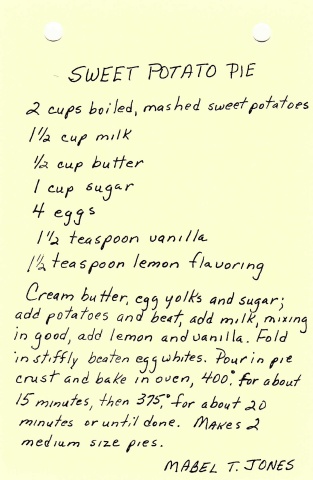 SWEET POTATO PIE
2 cups boiled, mashed sweet potatoes
1 1/2 cup milk
1/2 cup butter
1 cup sugar
4 eggs
1 1/2 teaspoon vanilla
1 1/2 teaspoon lemon flavoring
Cream butter, egg yolks and sugar;
add potatoes and beat, add milk, mixing
in good, add lemon and vanilla. Fold
in stiffly beaten egg whites. Pour in pie
crust and bake in oven, 400°, for about
15 minutes, then 375°, for about 20
minutes or until done. Makes 2
medium size pies.
MABEL T. JONES